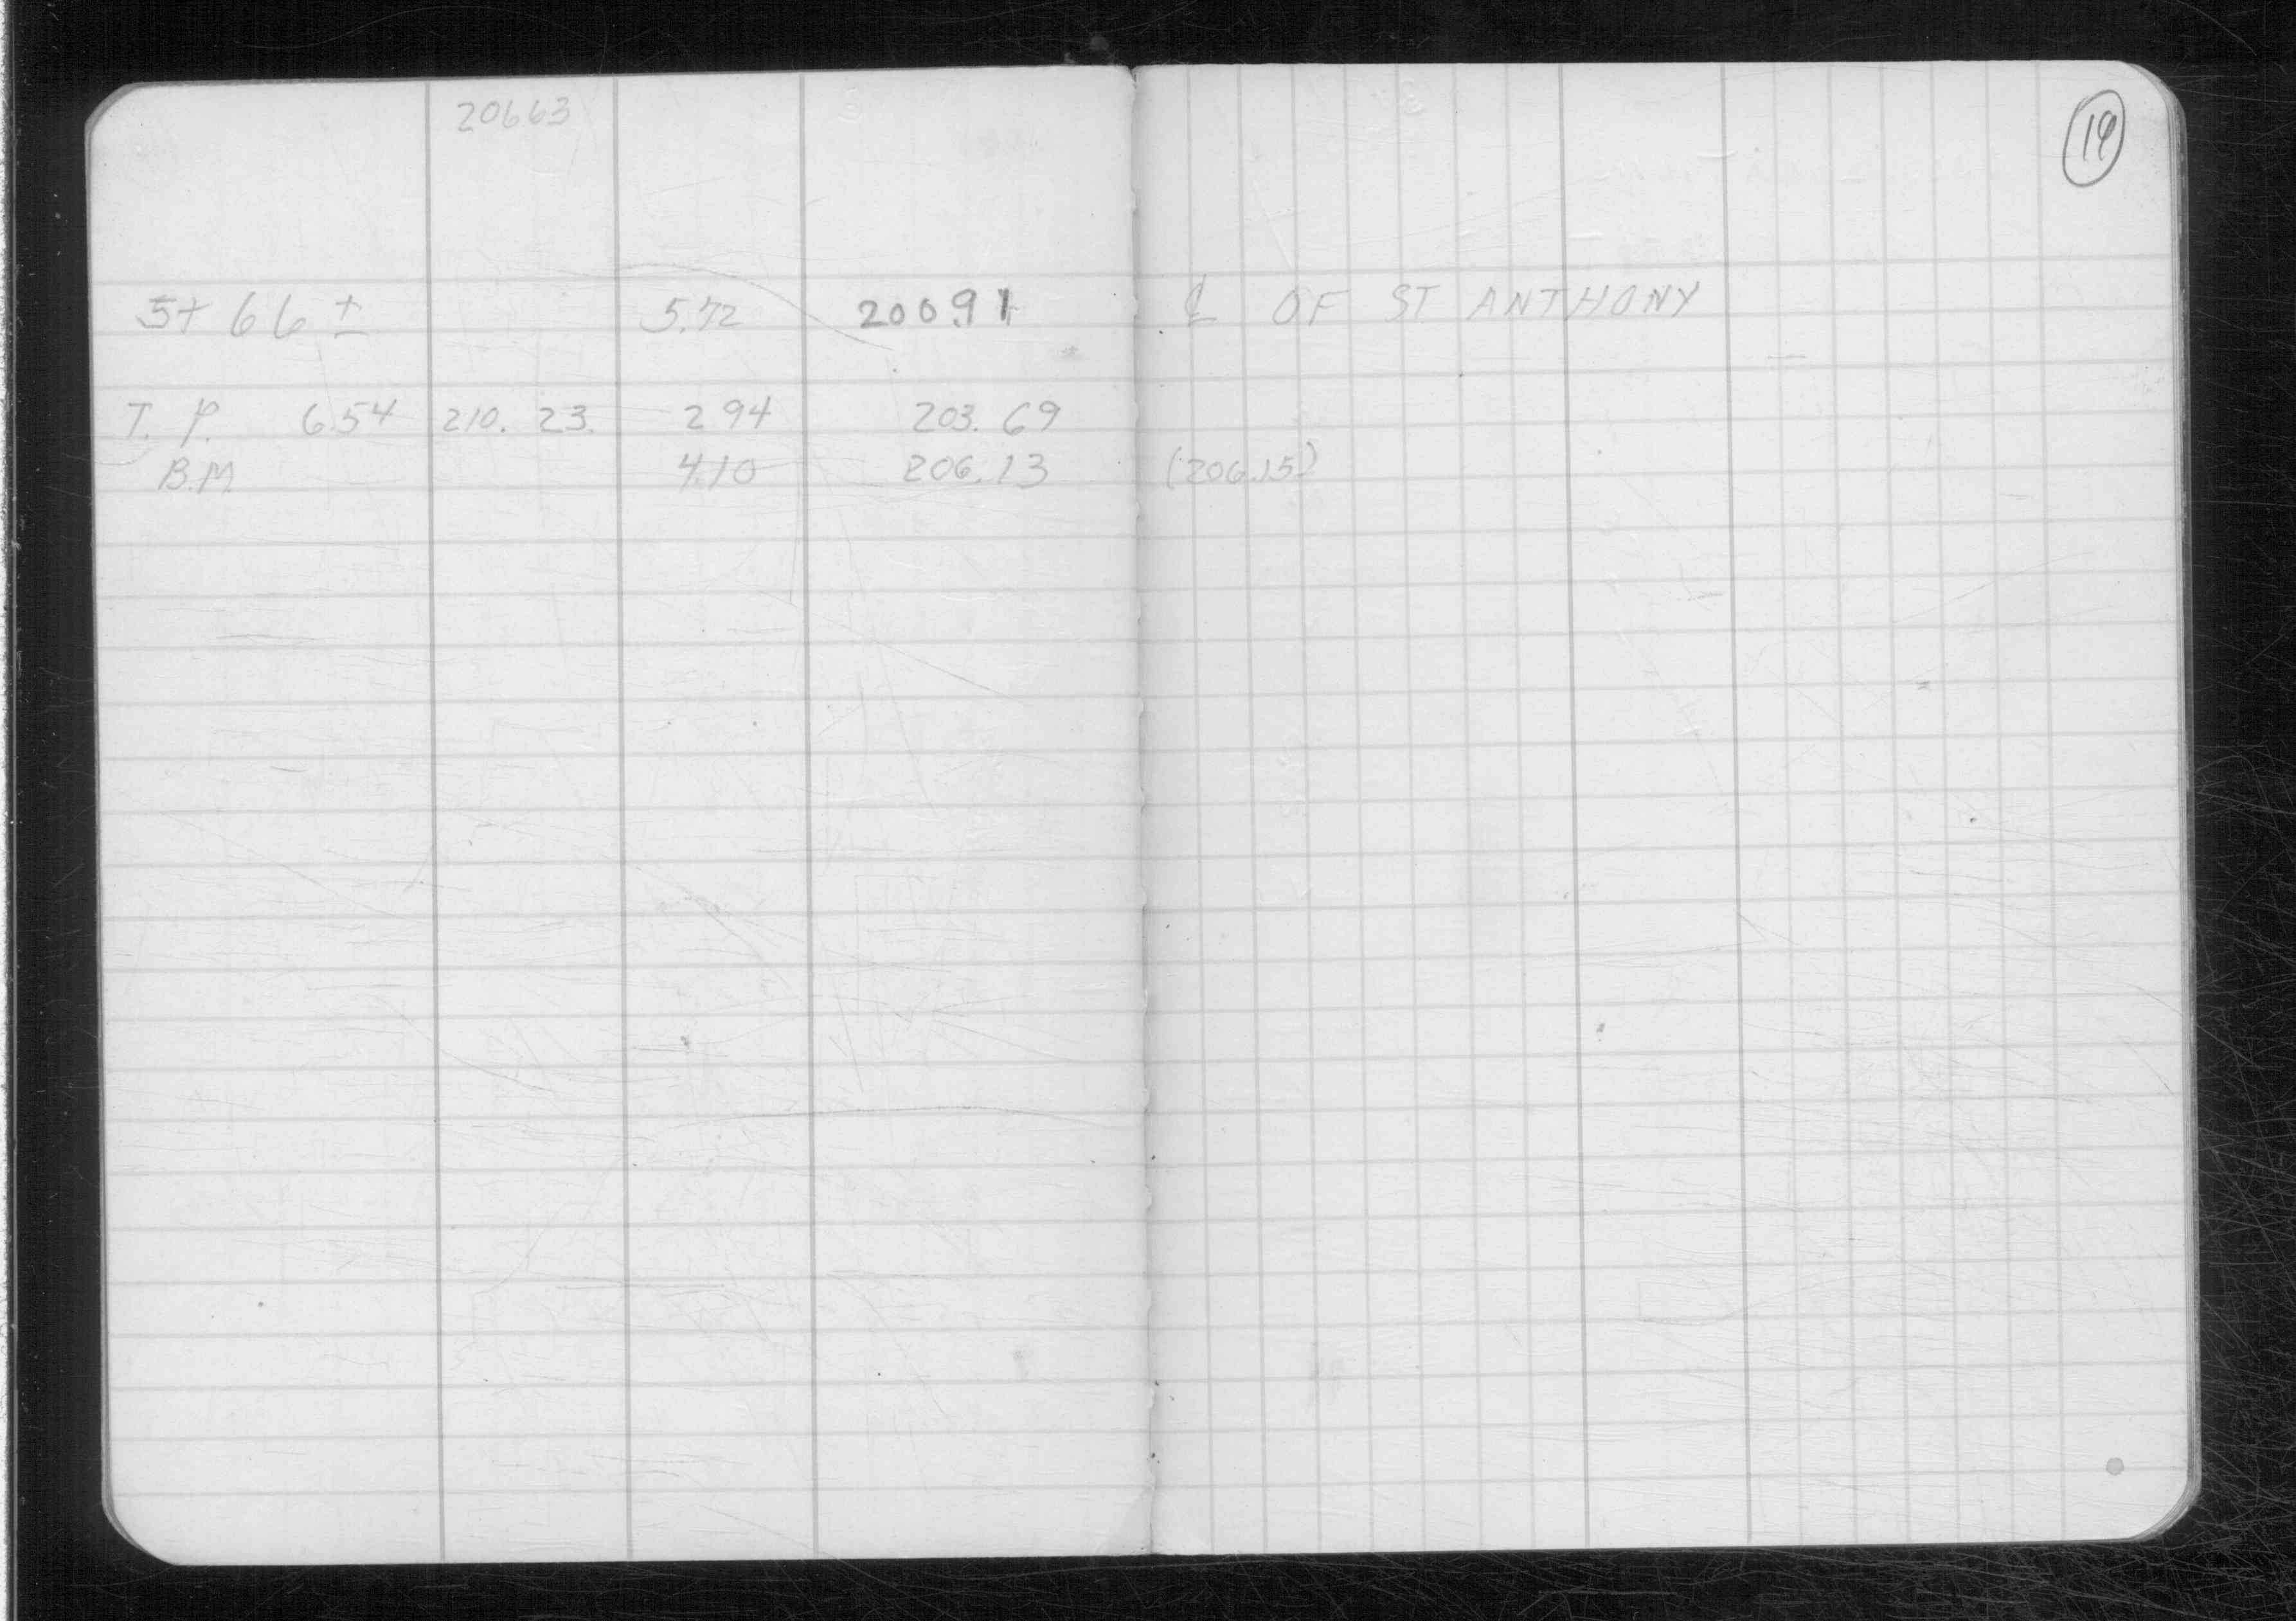 20663
19
5+66± 5.72 20091 ℄ OF ST ANTHONY
T. P. 6.54 210.23. 2 94 203.69
B.M 4.10 206.13 (206.15)